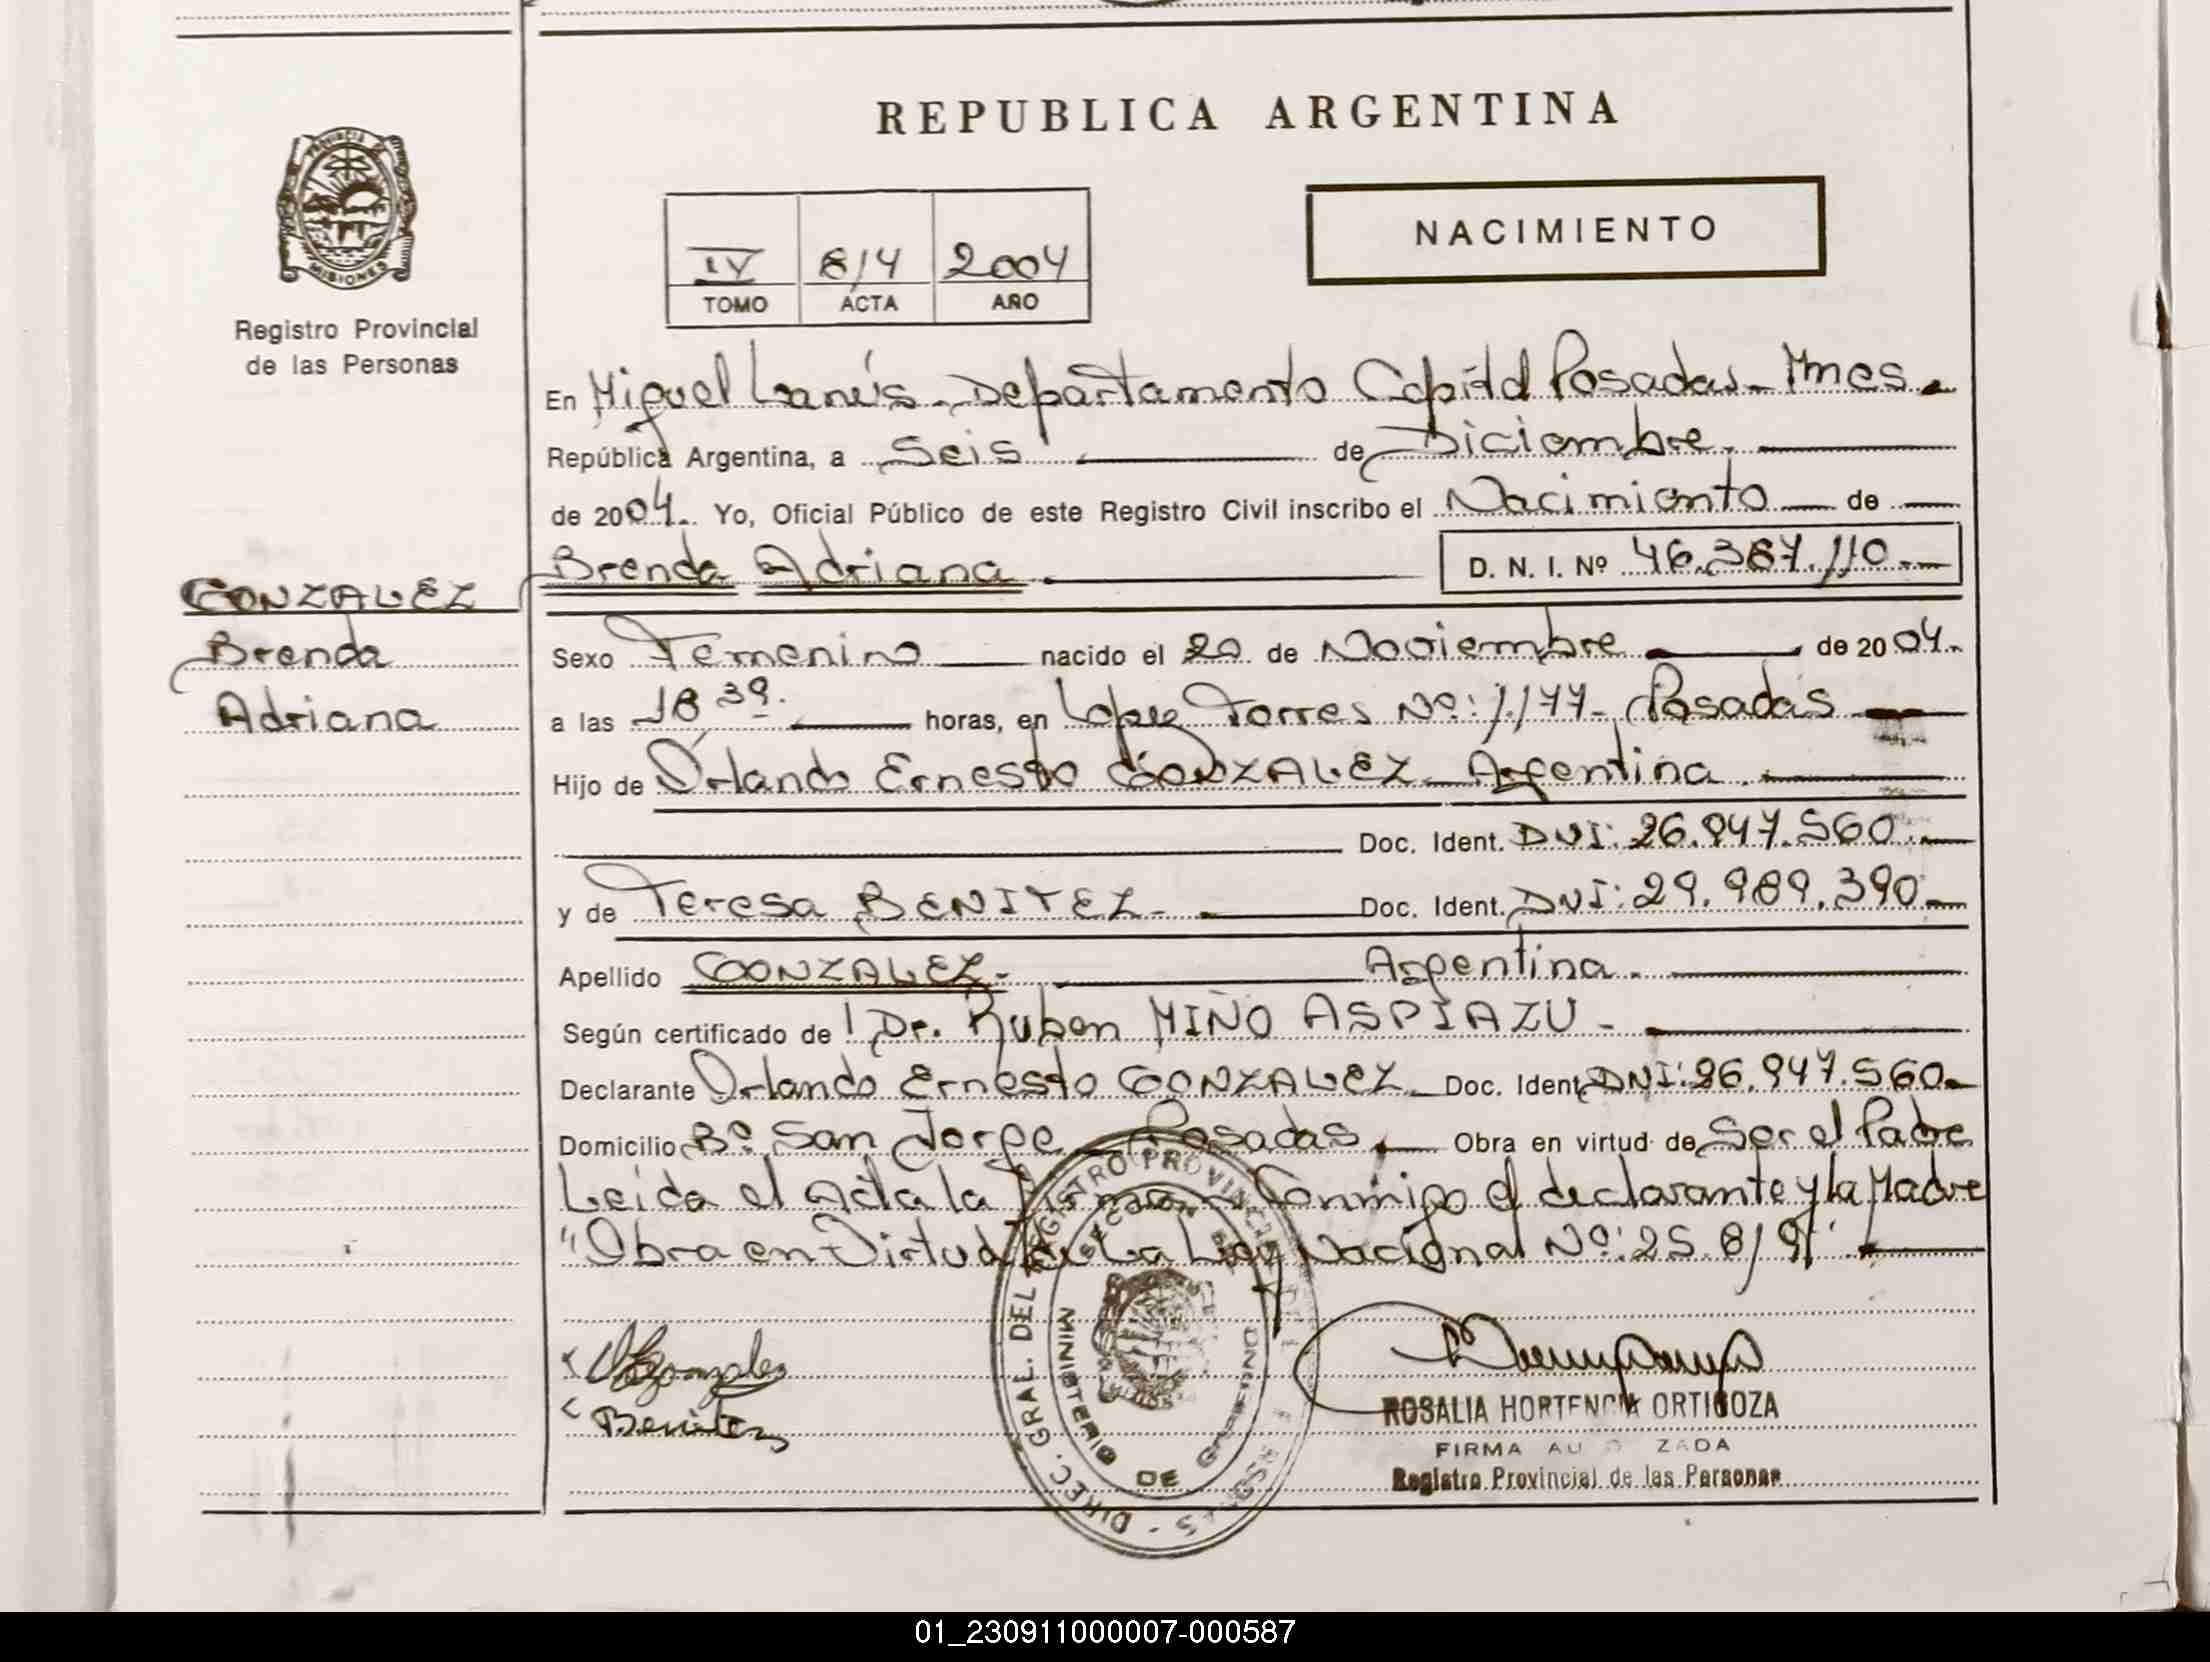 REPUBLICA ARGENTINA
PROVINCIA DE
MISIONES
Registro Provincial
de las Personas
NACIMIENTO
IV 814 2004
TOMO ACTA AÑO
En Miguel Lanús - Departamento Capital Posadas - Mnes.
República Argentina, a Seis de Diciembre.
de 2004. Yo, Oficial Público de este Registro Civil inscribo el Nacimiento de
Brenda Adriana. D. N. I. Nº 46.367.110.
GONZALEZ
Brenda
Adriana
Sexo Femenino nacido el 20 de Noviembre de 2004.
a las 18 39. horas, en Lopez Torres Nº: 1.177 - Posadas
Hijo de Orlando Ernesto GONZALEZ - Argentina.
Doc. Ident. DNI: 26.947.560.
y de Teresa BENITEZ - Doc. Ident. DNI: 29.989.390
Apellido GONZALEZ - Argentina.
Según certificado de Dr. Ruben MIÑO ASPIAZU -
Declarante Orlando Ernesto GONZALEZ Doc. Ident. DNI: 26.947.560.
Domicilio Bº San Jorge - Posadas. Obra en virtud de Ser el Padre
Leída el Acta la firman Conmigo el declarante y la Madre
"Obra en Virtud de La Ley Nacional Nº: 25.819"
Benitez
DIREC. GRAL. DEL REGISTRO PROVINCIAL DE LAS PERSONAS
MINISTERIO DE GOBIERNO
ROSALIA HORTENCIA ORTIGOZA
FIRMA AUTORIZADA
Registro Provincial de las Personas
01_230911000007-000587